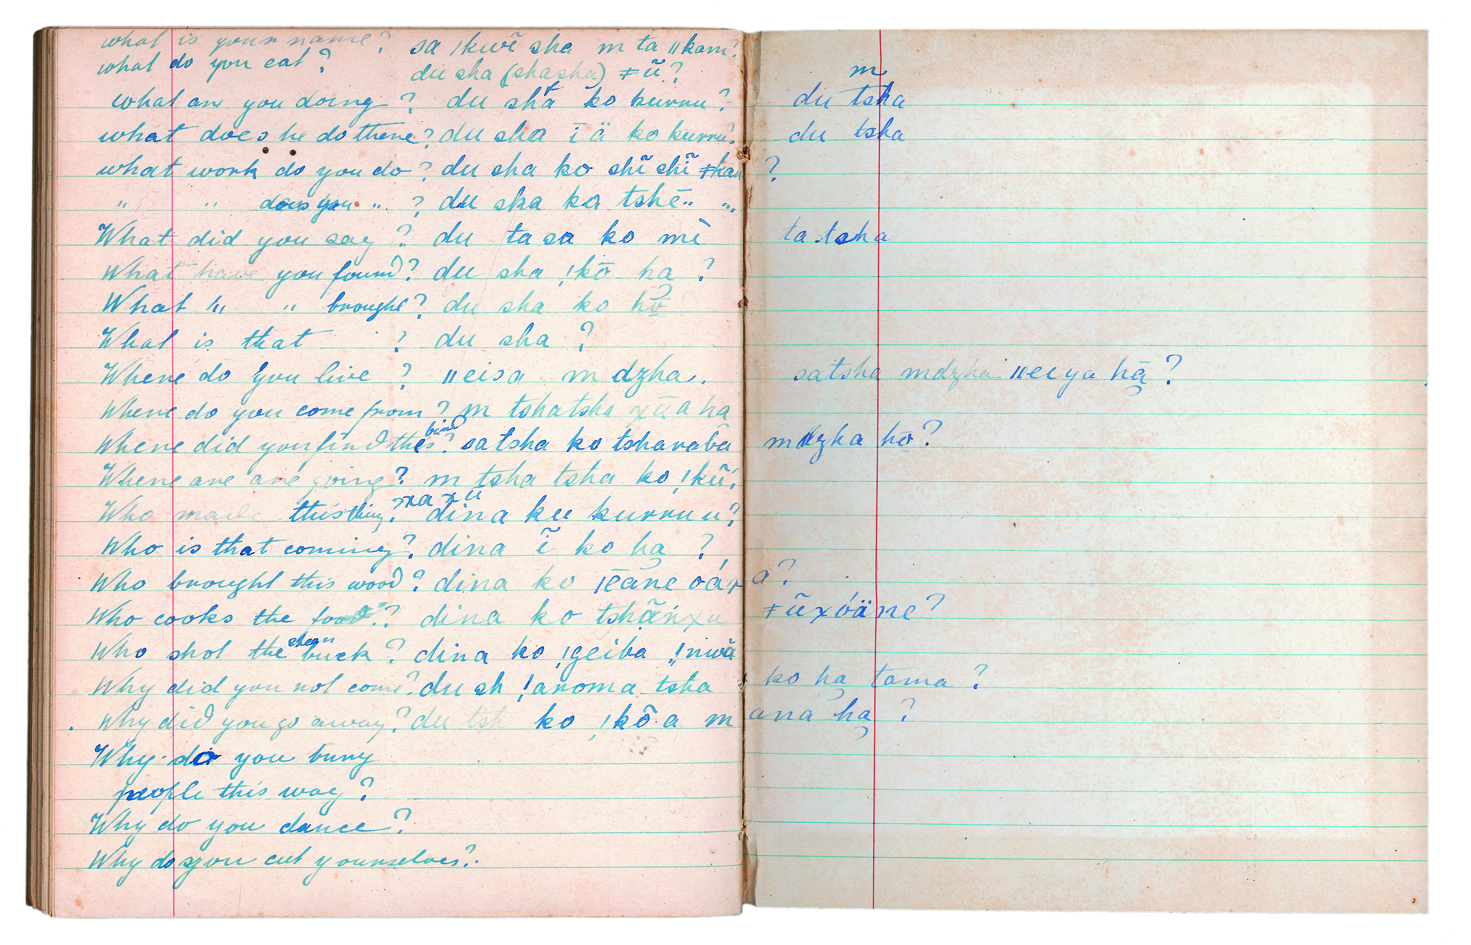 what is your name? sa /kwĩ sha m ta //kam?
what do you eat? du sha (shasha) ≠ũ?
m
what are you doing? du sha ko kurru? du tsha
what does he do there? du sha ī ä ko kurru? du tsha
what work do you do? du sha ko shĩ shĩ ≠kan ?
" " does you " ? du sha ko tshē " "
What did you say? du ta sa ko mĩ ta tsha
What have you found? du sha !kō ha ?
What " " brought? du sha ko hō ?
What is that ? du sha ?
Where do you live ? //eisa m dzha. satsha mdzha //eeya hā ?
Where do you come from? m tshatsha xūa ha
bird
Where did you find this? sa tsha ko tsharaba m dzha hō ?
Where are are going? m tsha tsha ko !kũ?
xa xũ
Who made this thing? dina ke kurru u?
Who is that coming? dina ĩ ko ha ?
Who brought this wood? dina ko /ēāne óára ?
Who cooks the food? dina ko tshãnxu ≠ũxóäne?
steen
Who shot the buck? dina ko !geiba !nwa
Why did you not come? du sh !aroma tsha ko ha tama ?
Why did you go away? du tsh ko !kõa m ana ha ?
Why do you bury
people this way?
Why do you dance?
Why do you cut yourselves?